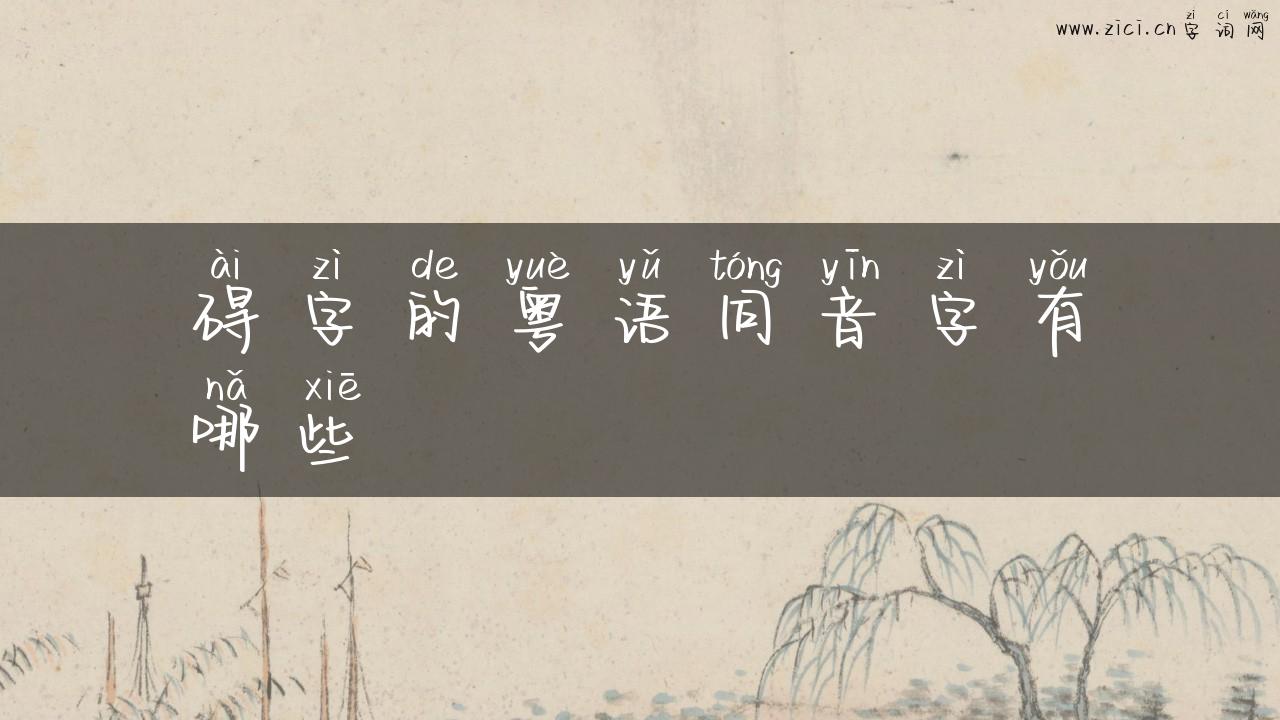 zì cí wǎng
www.zici.cn 字词网
ài zì de yuè yǔ tóng yīn zì yǒu
碍字的粤语同音字有
nǎ xiē
哪些